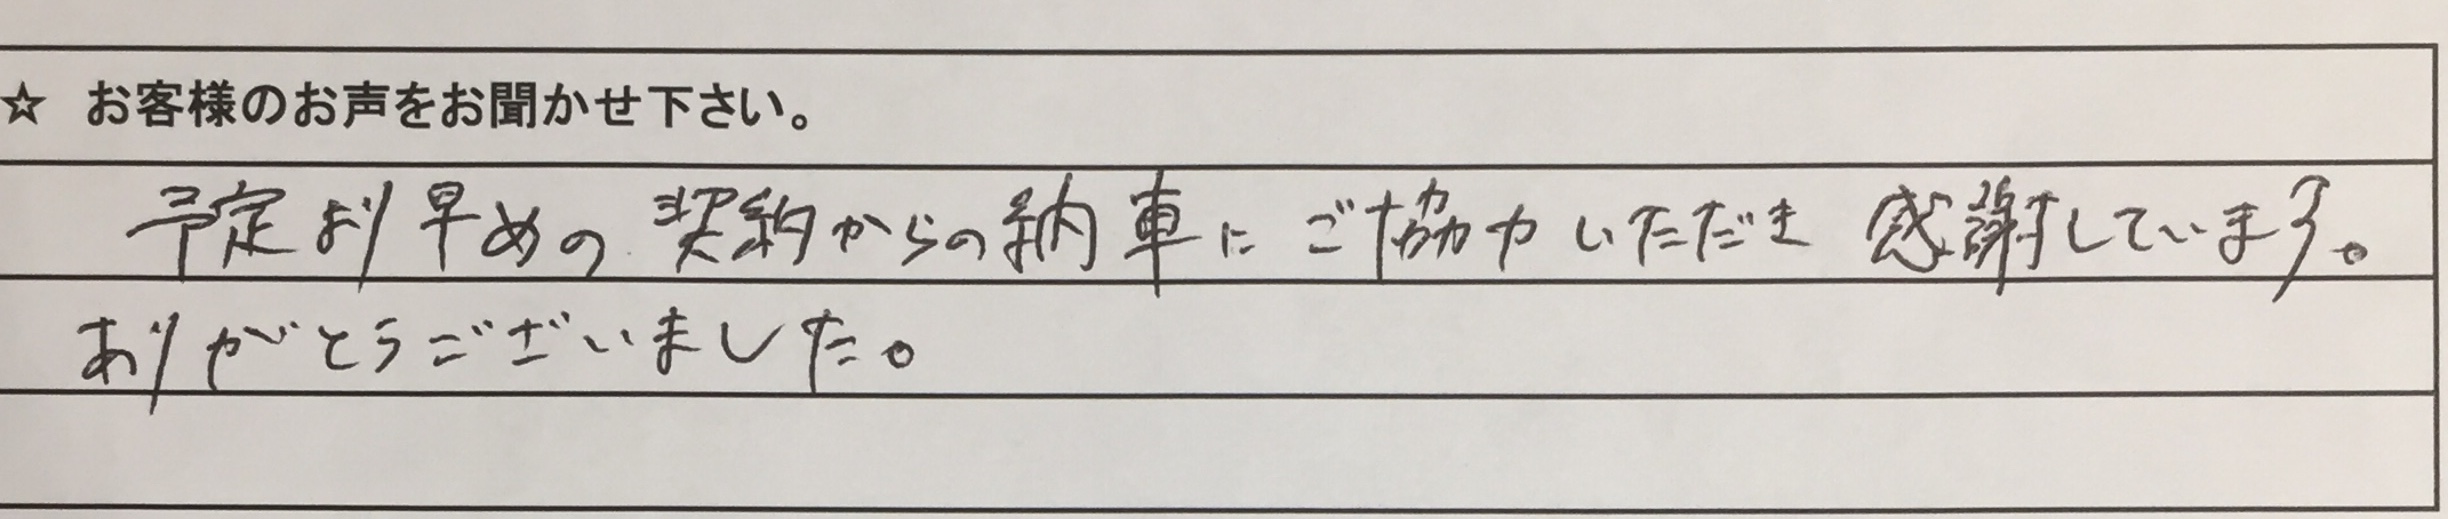 ☆ お客様のお声をお聞かせ下さい。
予定より早めの契約からの納車にご協力いただき感謝しています。
ありがとうございました。